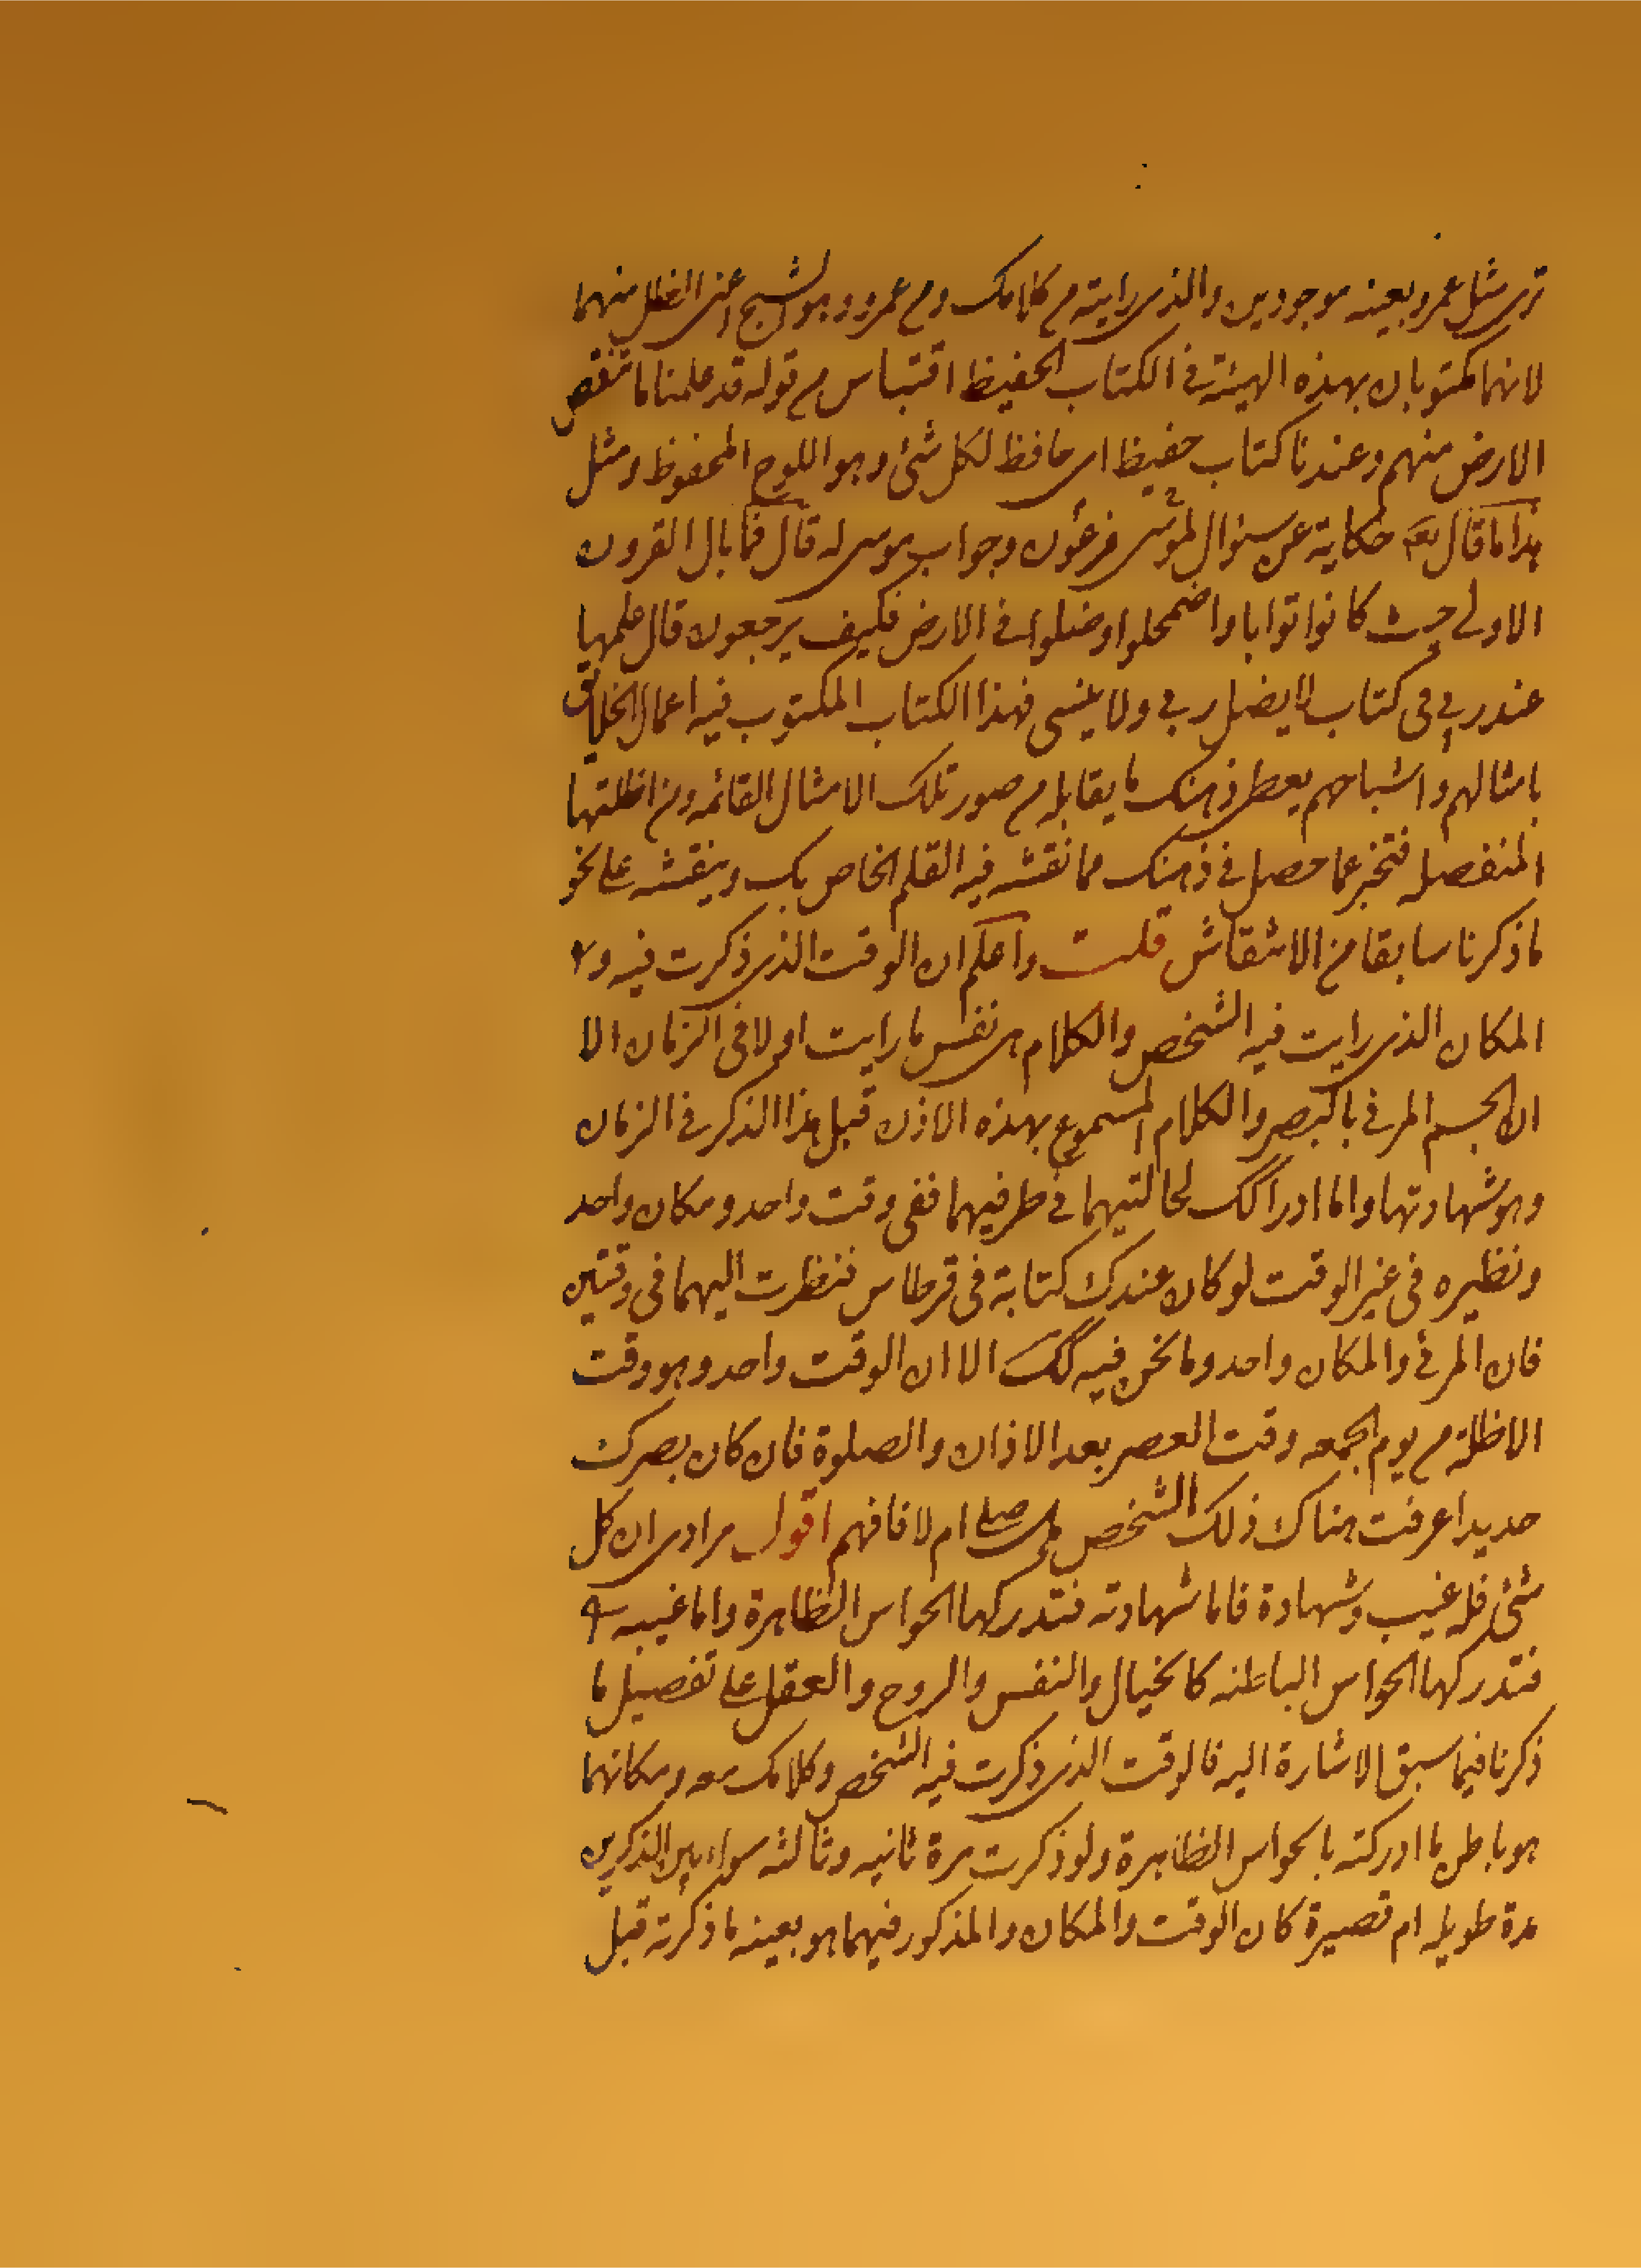 ترى مثل عمرو بعينه موجودين والذي رايته من كلامك ومن عمرو وهو الشبح اعنى الظل منهما
لانهما مكتوبان بهذه الهيئة في الكتاب الحفيظ اقتباس من قوله قد علمنا ما تنقص
الارض منهم وعندنا كتاب حفيظ اى حافظ لكل شئ وهو اللوح المحفوظ ومثل
هذا ما قال تعه حكاية عن سئوال لموسى فرعون وجواب موسى له قال فما بال القرون
الاولى حيث كانوا ترابا واضمحلوا وضلوا في الارض فكيف يرجعون قال علمها
عند ربي في كتاب لا يضل ربي ولا ينسى فهذا الكتاب المكتوب فيه اعمال الخلايق
بامثالهم واشباحهم يعطى ذهنك ما يقابله من صور تلك الامثال القائمه ومن اظلتها
المنفصله فتخبر عما حصل في ذهنك مما نقشه فيه القلم الخاص بك وينقشه على نحو
ما ذكرنا سابقا من الانتقاش قلت واعلم ان الوقت الذى ذكرت فيه و
المكان الذى رايت فيه الشخص والكلام هى نفس ما رايت اولا في الزمان الا
ان الجسم المرئي بالبصر والكلام المسموع بهذه الاذن قبل هذا الذكر في الزمان
وهو شهادتها واما ادراكك لحالتيهما في طرفيهما ففى وقت واحد ومكان واحد
ونظيره في غير الوقت لو كان عندك كتابة في قرطاس فنظرت اليهما في وقتين
فان المرئي والمكان واحد وما نحن فيه كك الا ان الوقت واحد وهو وقت
الاظلة من يوم الجمعه وقت العصر بعد الاذان والصلوة فان كان بصرك
حديدا عرفت هناك ذلك الشخص هل صلى ام لا فافهم اقول مرادى ان كل
شئ فله غيب وشهادة فاما شهادته فتدركها الحواس الظاهرة واما غيبه
فتدركها الحواس الباطنه كالخيال والنفس والروح والعقل على تفصيل ما
ذكرنا فيما سبق الاشارة اليه فالوقت الذى ذكرت فيه الشخص وكلامك معه ومكانهما
هو باطن ما ادركته بالحواس الظاهرة ولو ذكرت مرة ثانيه وثالثه سواء بين الذكرين
مدة طويله ام قصيرة كان الوقت والمكان والمذكور فيهما هو بعينه ما ذكرته قبل